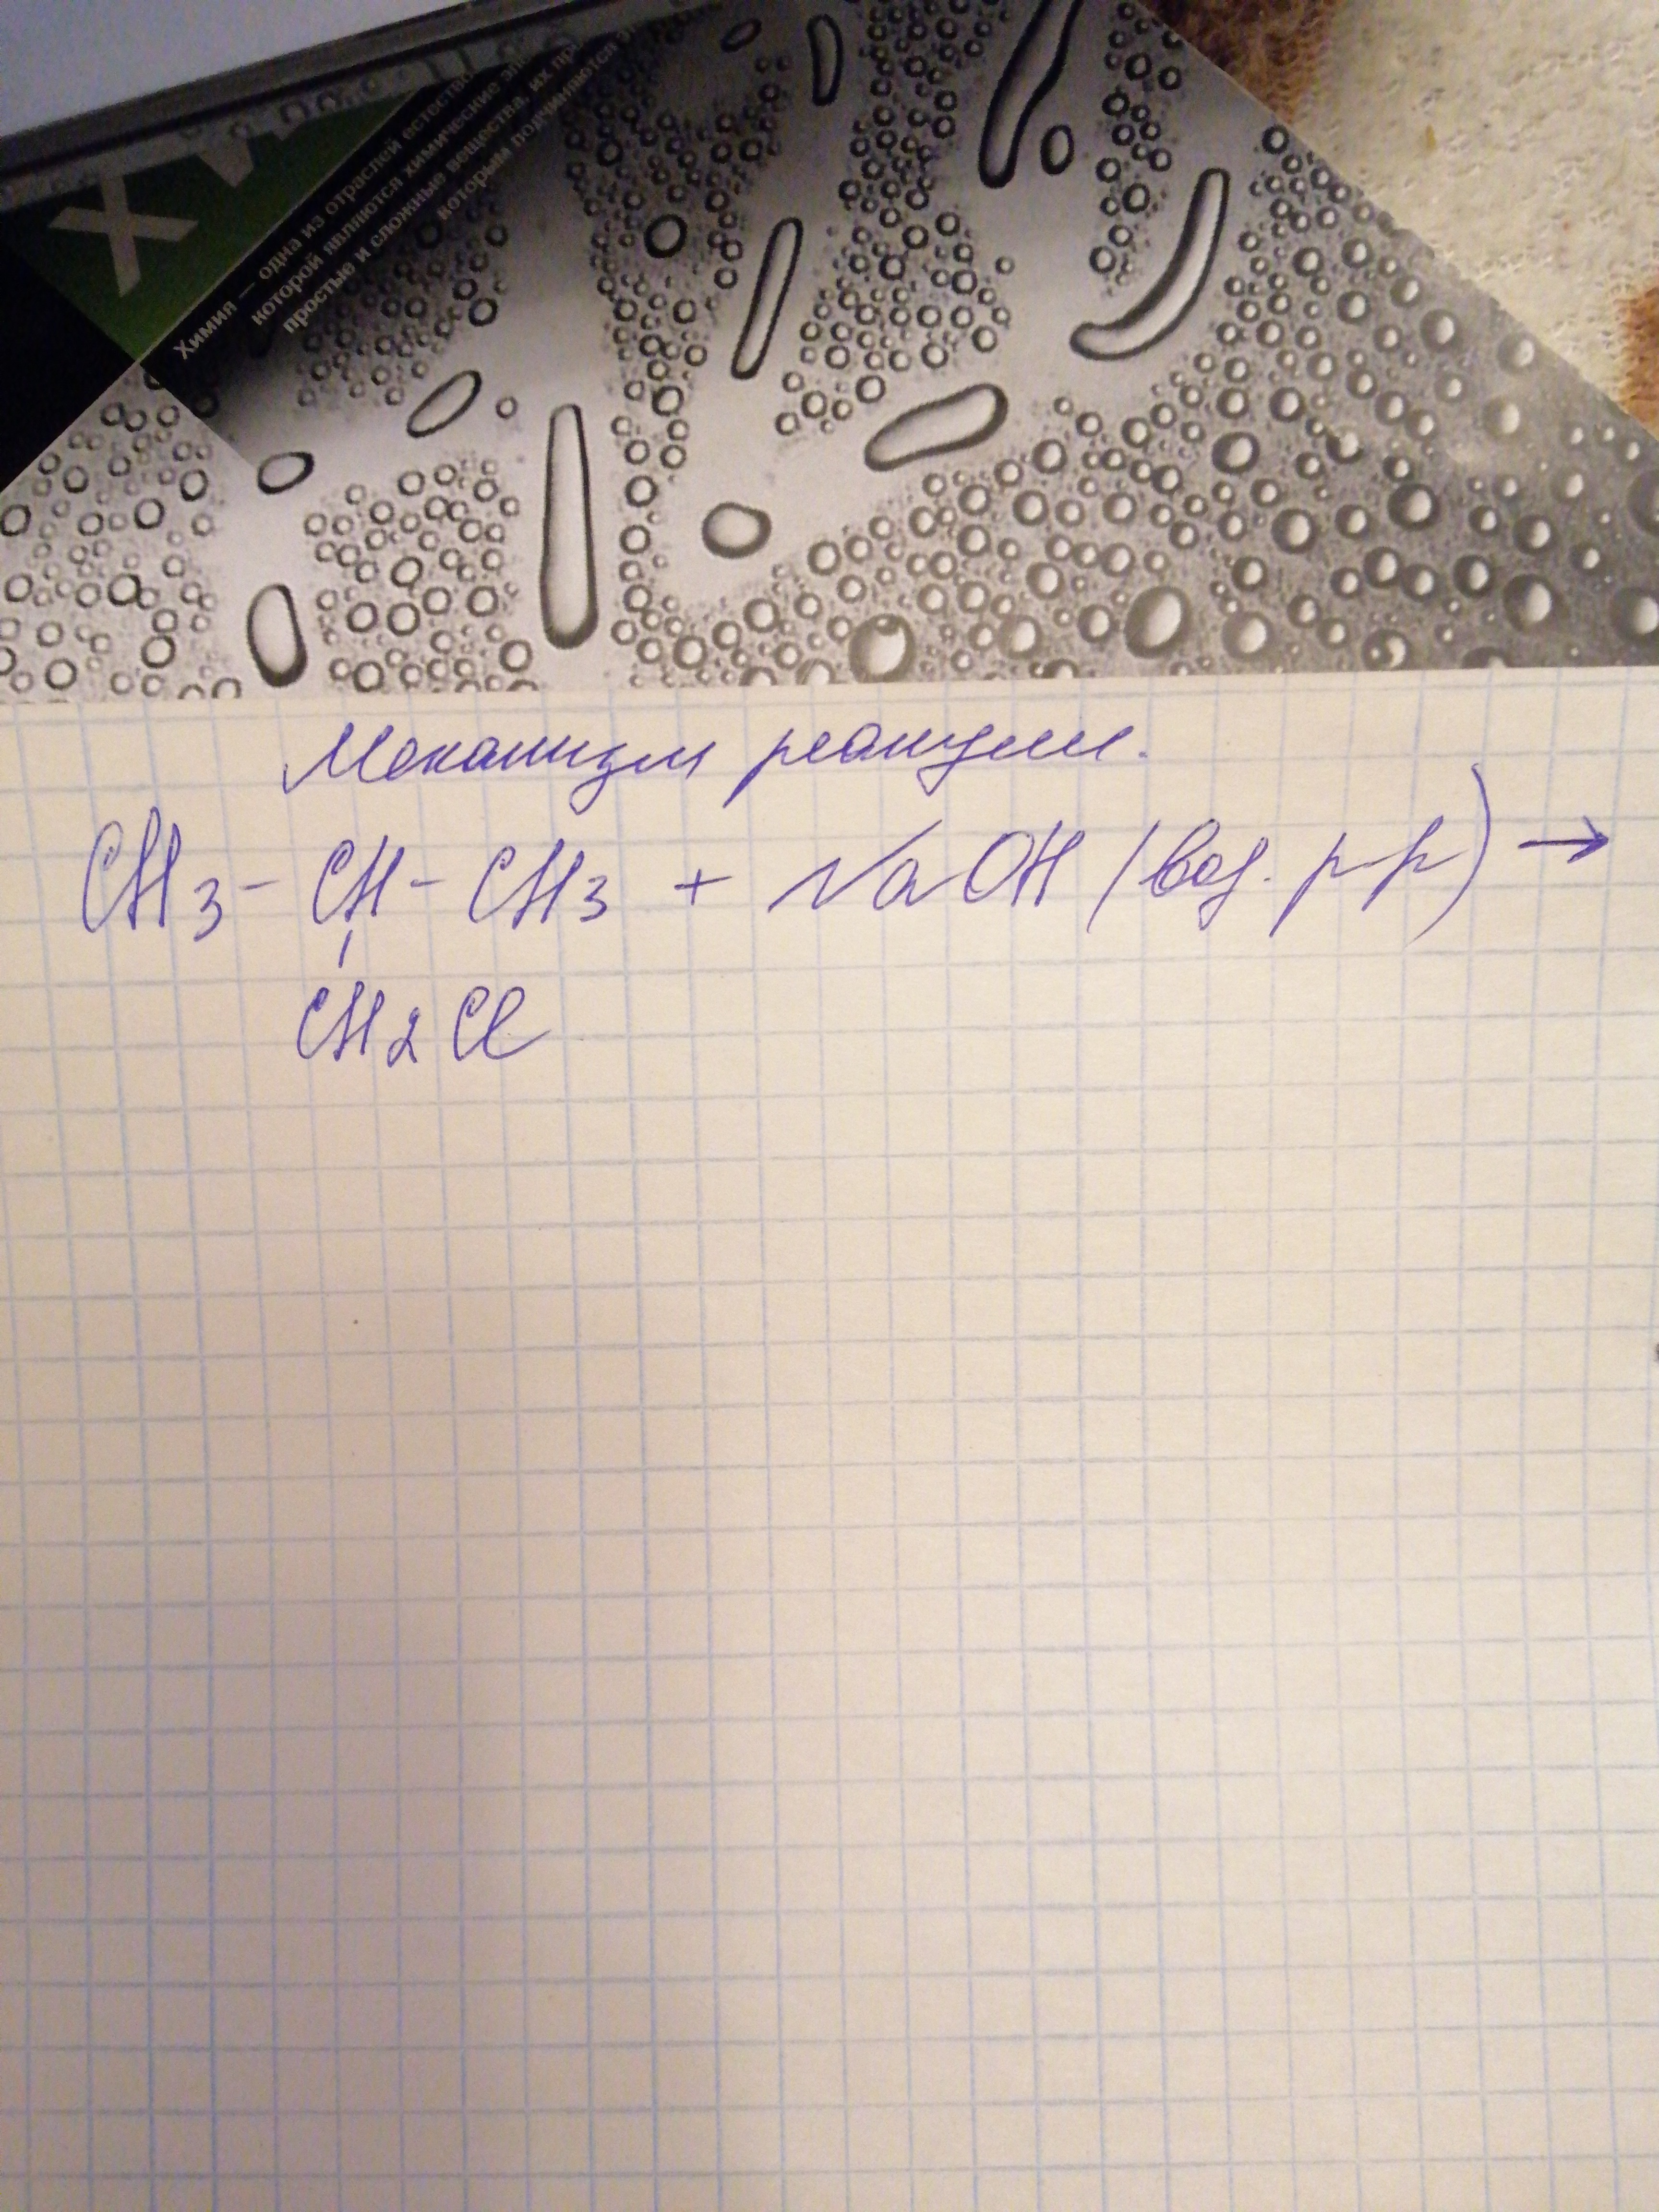 Химия — одна из отраслей естество
которой являются химические эле
простые и сложные вещества, их пр
которым подчиняются э
Механизм реакции.
CH3 - CH - CH3 + NaOH (вод. р-р) →
CH2Cl